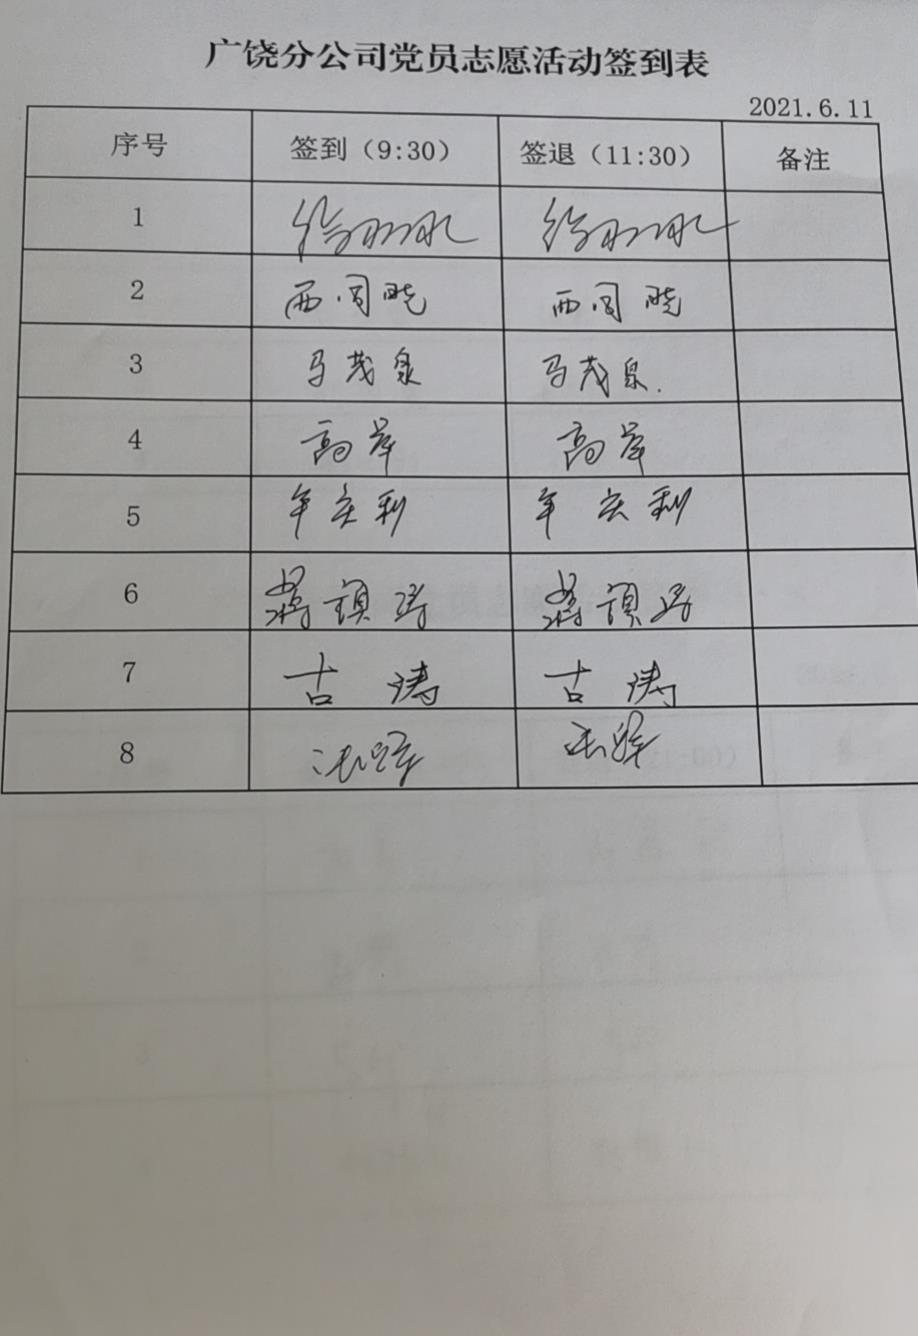 广饶分公司党员志愿活动签到表
2021.6.11
序号 签到（9:30） 签退（11:30） 备注
1
2 西闰晓 西闰晓
3 马茂泉 马茂泉.
4 高岸 高岸
5 年庆利 年庆利
6 蒋镇 蒋镇
7 古涛 古涛
8